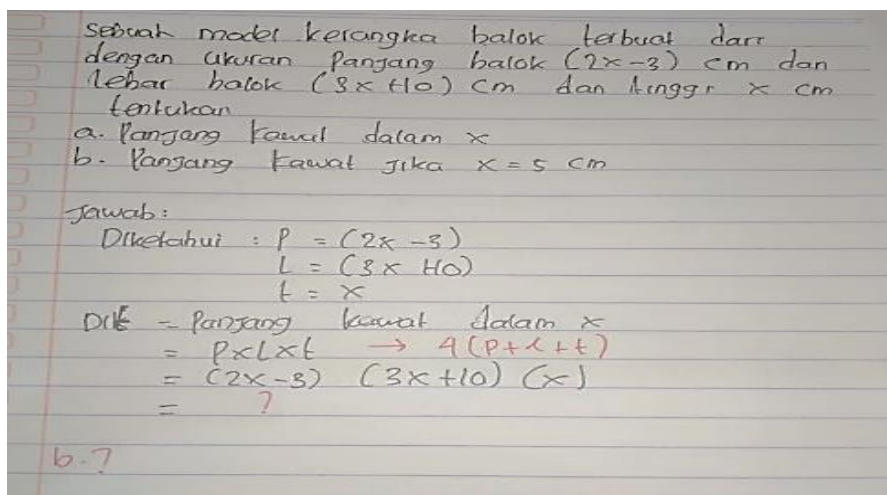 Sebuah model kerangka balok terbuat dari
dengan ukuran Panjang balok (2x-3) cm dan
lebar balok (3x+10) cm dan tinggi x cm
tentukan
a. Panjang kawat dalam x
b. Panjang kawat jika x = 5 cm
Jawab:
Diketahui : P = (2x-3)
L = (3x+10)
t = x
Dit = Panjang kawat dalam x
= PxLxt → 4(P+l+t)
= (2x-3) (3x+10) (x)
= ?
b.?